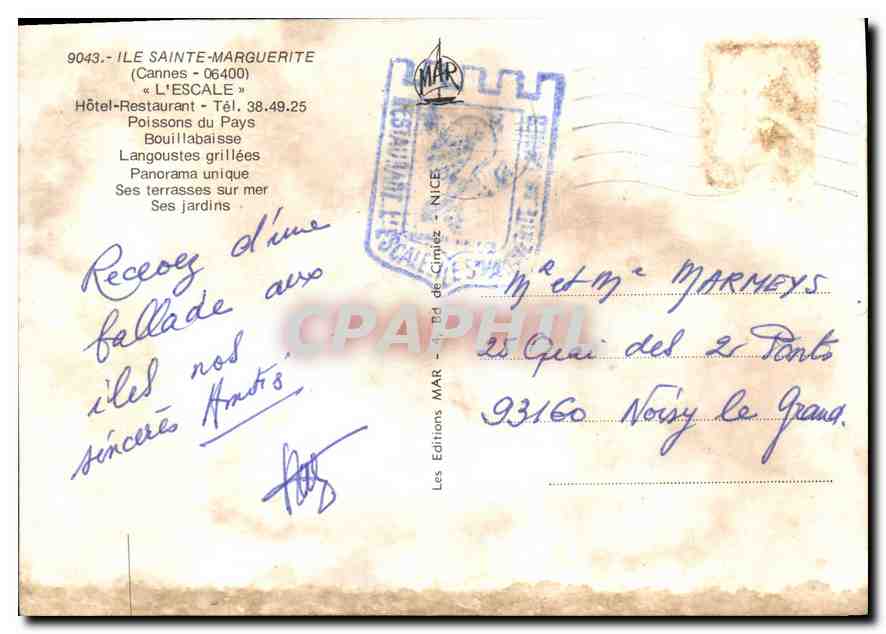 9043.- ILE SAINTE-MARGUERITE
(Cannes - 06400)
« L'ESCALE »
Hôtel-Restaurant - Tél. 38.49.25
Poissons du Pays
Bouillabaisse
Langoustes grillées
Panorama unique
Ses terrasses sur mer
Ses jardins
MAR
RESTAURANT L'ESCALE
Recevez d'une
ballade aux
îles nos
sincères Amitiés
Les Editions MAR - 4, Bd de Cimiez - NICE
Mr et Me MARMEYS
25 Quai des 2 Ponts
93160 Noisy le Grand.
CPAPHIL